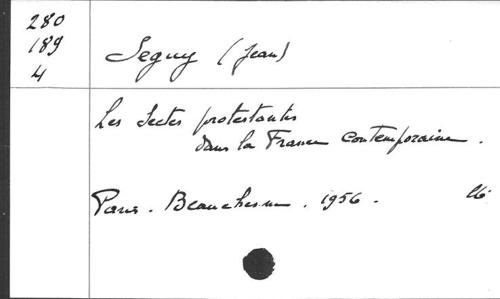 280
189
4
Seguy (Jean)
Les Sectes protestantes
dans la France contemporaine.
Paris. Beauchesne. 1956.